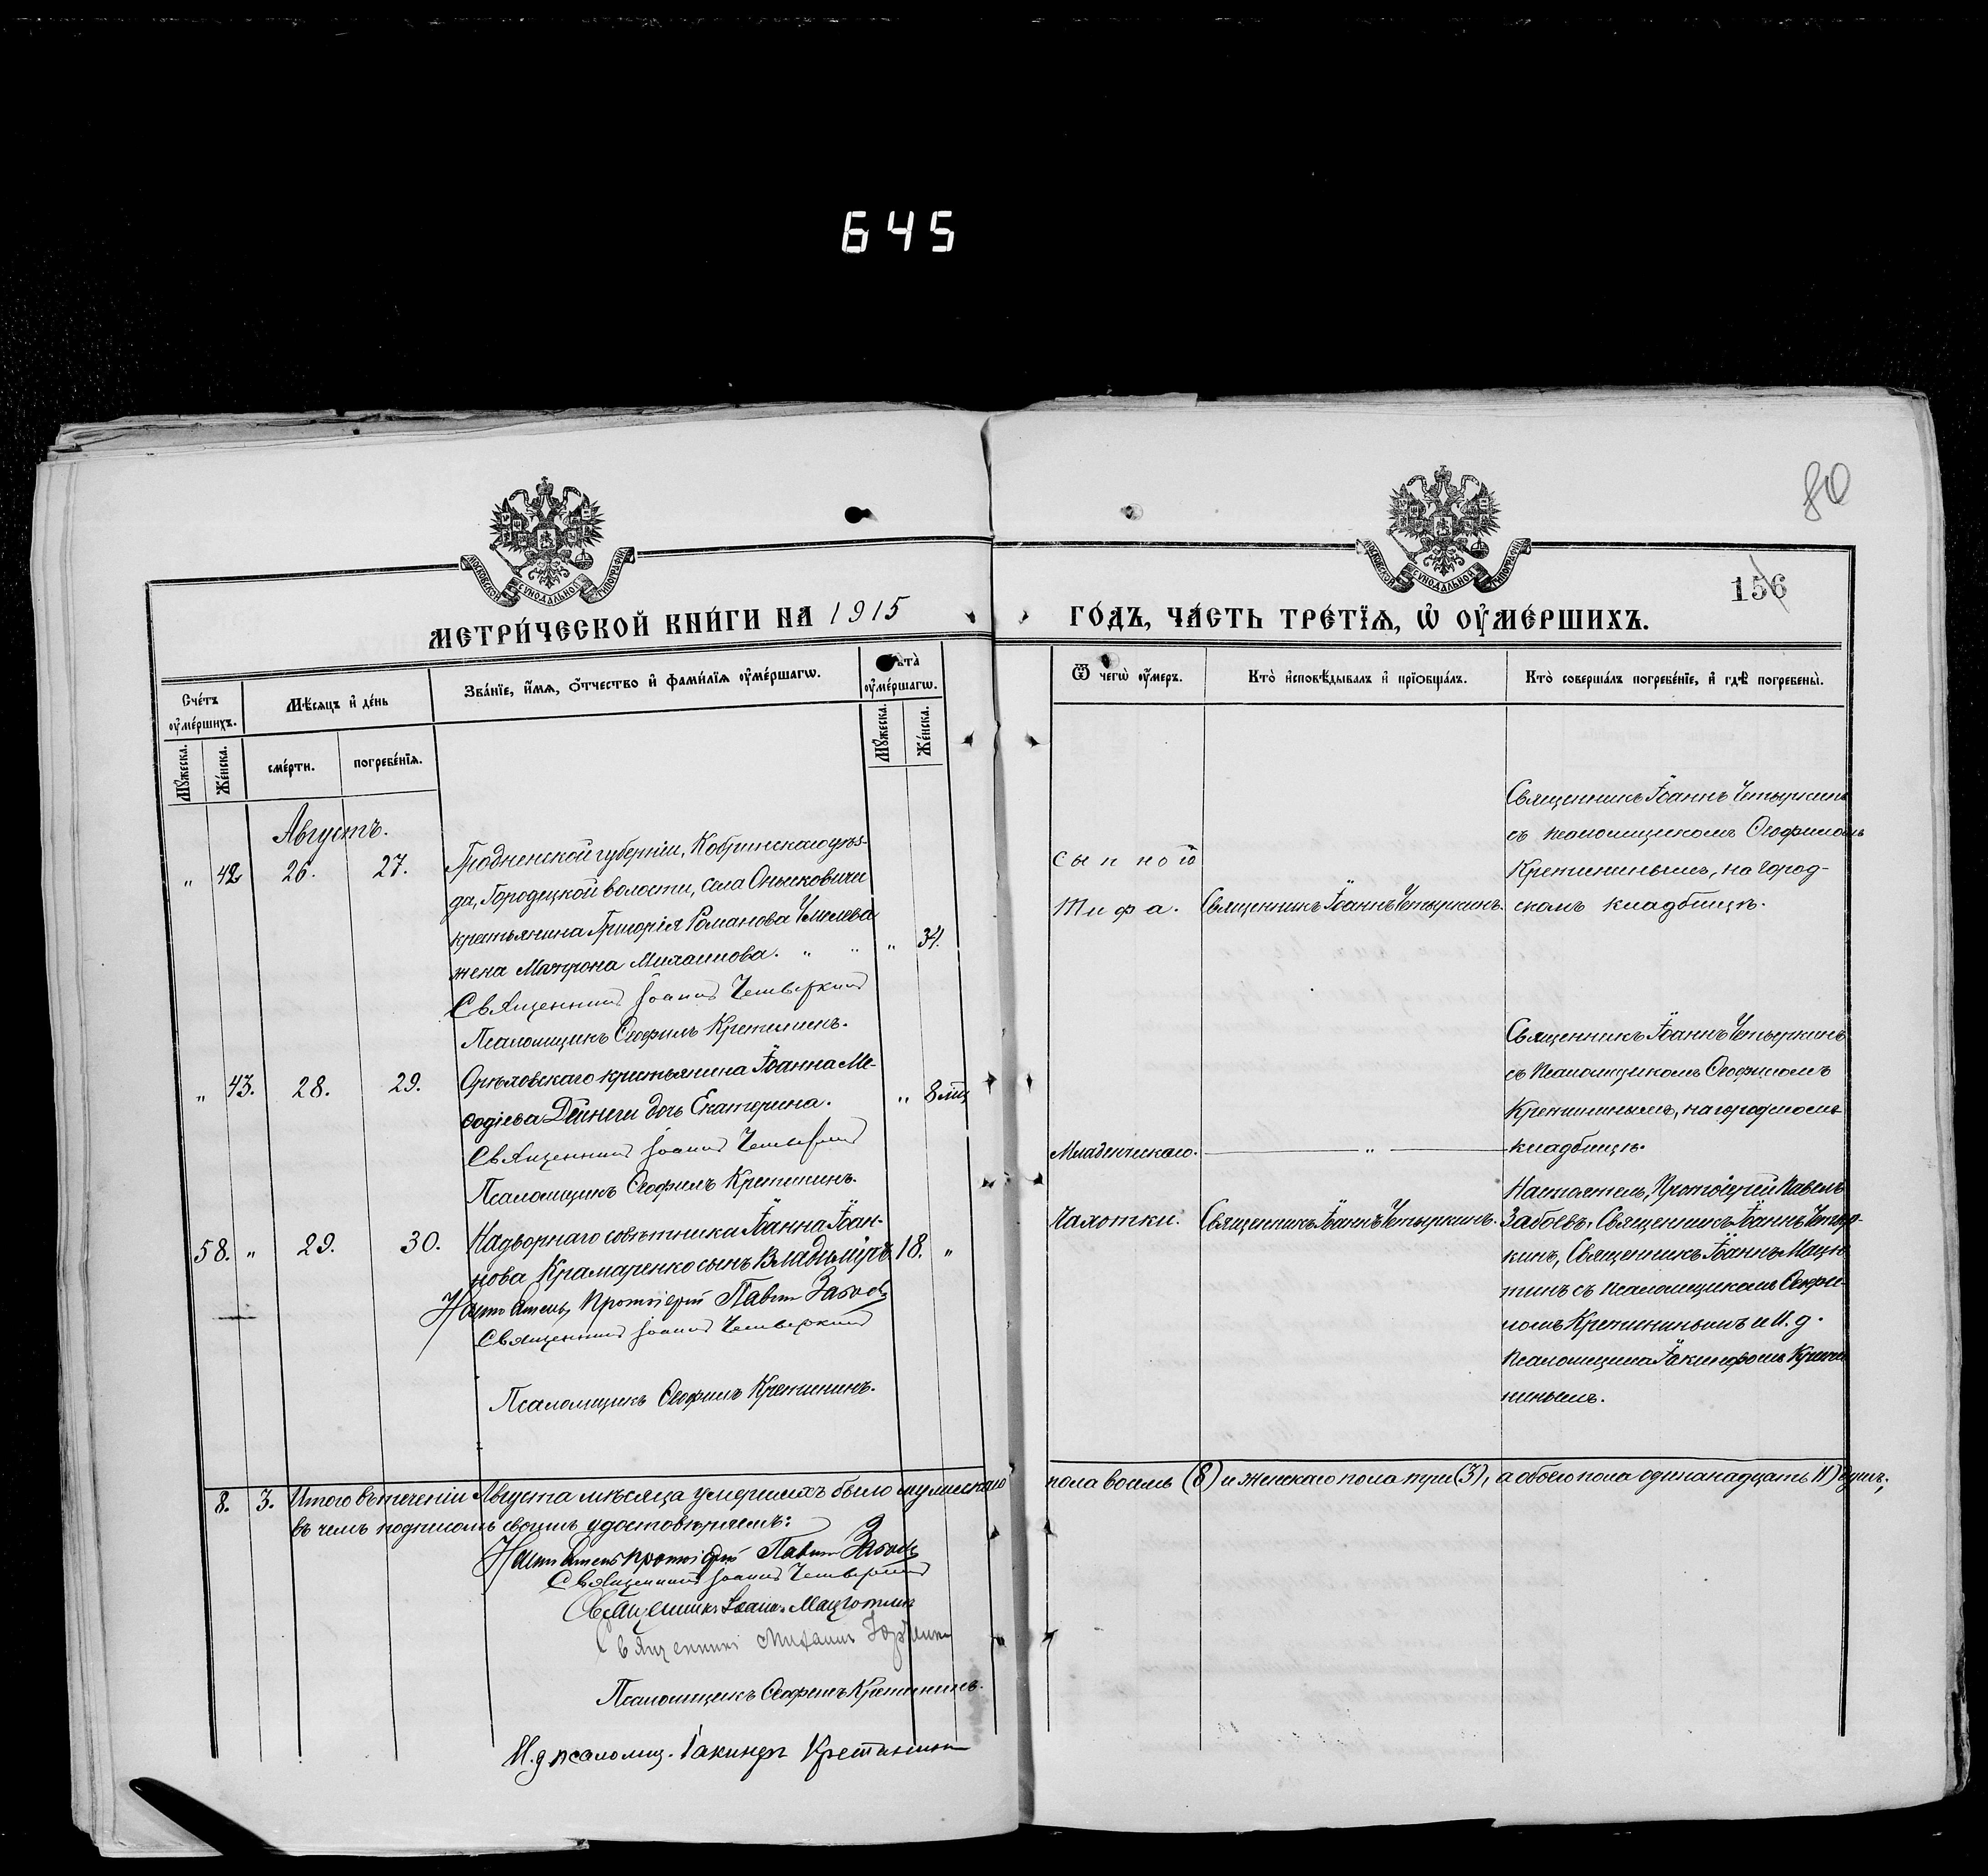 645
80
156
МОСКОВСКОЙ СѴНОДАЛЬНОЙ ТИПОГРАФІИ
МОСКОВСКОЙ СѴНОДАЛЬНОЙ ТИПОГРАФІИ
МЕТРИ́ЧЕСКОЙ КНИ́ГИ НА 1915
ГО́ДЪ, ЧА́СТЬ ТРЕ́ТЇѦ, Ѡ҆ ОУ҆МЕ́РШИХЪ.
Сче́тъ оу҆ме́ршихъ.
Мѣ́сяцъ и҆ де́нь
Зва́нїе, и҆́мѧ, ѻ҆́тчество и҆ фами́лїѧ оу҆ме́ршагѡ.
Лѣта̀ оу҆ме́ршагѡ.
Ѿ чегѡ̀ оу҆́меръ.
Кто̀ и҆сповѣ́дывалъ и҆ прїѻбща́лъ.
Кто̀ соверша́лъ погребе́нїе, и҆ гдѣ̀ погребены̀.
Мꙋ́жеска.
Же́нска.
сме́рти.
погребе́нїѧ.
Мꙋ́жеска.
Же́нска.
Августъ.
" 42 26. 27. Гродненской губерніи, Кобринскаго уѣз-
да, Городецкой волости, села Онисковичи
крестьянина Григорія Романова Чмелева
жена Матрона Михаилова. " " " 34.
Священникъ Іоаннъ Четыркинъ
Псаломщикъ Ѳеофилъ Кретининъ.
Сыпного
тифа.
Священникъ Іоаннъ Четыркинъ.
Священникъ Іоаннъ Четыркинъ
съ псаломщикомъ Ѳеофиломъ
Кретининымъ, на город-
скомъ кладбищѣ.
" 43. 28. 29. Орѣховскаго крестьянина Іоанна Ме-
ѳодіева Дейнеги дочь Екатерина. " 8 мѣс
Священникъ Іоаннъ Четыркинъ
Псаломщикъ Ѳеофилъ Кретининъ.
Младенческаго.
"
Священникъ Іоаннъ Четыркинъ
съ псаломщикомъ Ѳеофиломъ
Кретининымъ, на городскомъ
кладбищѣ.
58. " 29. 30. Надворнаго совѣтника Іоанна Іоан-
нова Крамаренко сынъ Владиміръ. 18. "
Настоятель, Протоіерей Павелъ Забоевъ
Священникъ Іоаннъ Четыркинъ
Псаломщикъ Ѳеофилъ Кретининъ.
Чахотки.
Священникъ Іоаннъ Четыркинъ.
Настоятель, Протоіерей Павелъ
Забоевъ, Священникъ Іоаннъ Четыр-
кинъ, Священникъ Іоаннъ
съ псаломщикомъ Ѳеофи-
ломъ Кретининымъ и И. д.
псаломщика Іакинфомъ Крети
нинымъ.
8. 3. Итого въ теченіи Августа мѣсяца умершихъ было мужескаго
пола восемь (8) и женскаго пола три (3), а обоего пола одинанадцать 11) душъ;
въ чемъ подписомъ своимъ удостовѣряемъ:
Настоятель Протоіерей Павелъ Забоевъ
Священникъ Іоаннъ Четыркинъ
Священникъ Іоаннъ
Священникъ Михаилъ
Псаломщикъ Ѳеофилъ Кретининъ.
И. д псаломщ. Іакинфъ Кретининъ